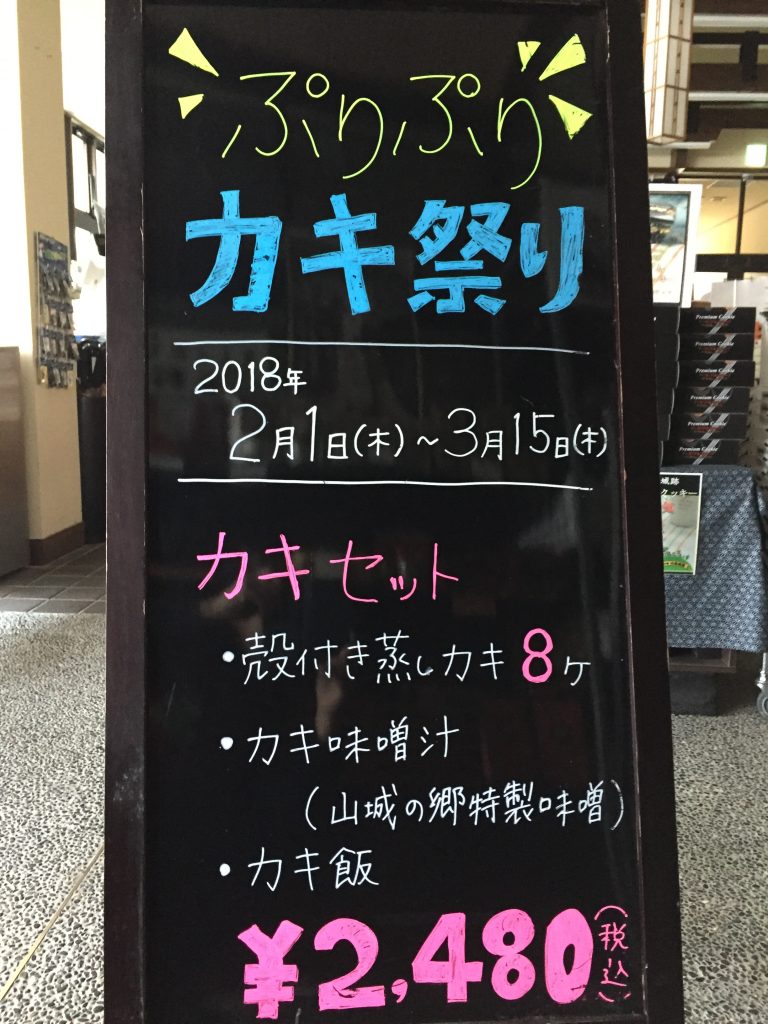 ぷりぷり
カキ祭り
2018年
2月1日(木)~3月15日(木)
カキセット
・殻付き蒸しカキ8ヶ
・カキ味噌汁
(山城の郷特製味噌)
・カキ飯
¥2,480(税込)
Premium Cookie
Premium Cookie
Premium Cookie
Premium Cookie
Premium Cookie
Premium Cookie
城跡
クッキー